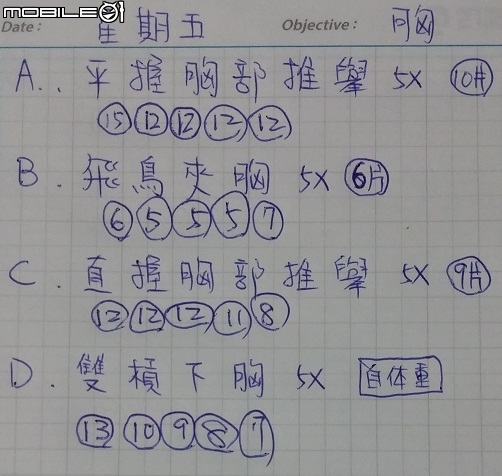 MOBILE01
Date: 星期五 Objective: 胸
A.. 平握胸部推舉 5X 10片
15 12 12 12 12
B. 飛鳥夾胸 5X 6片
6 5 5 5 7
C. 直握胸部推舉 5X 9片
12 12 12 11 8
D. 雙槓下胸 5X 自体重
13 10 9 8 7